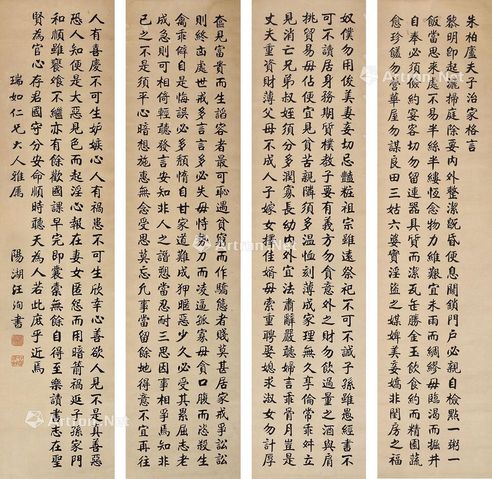 朱柏廬夫子治家格言
黎明即起灑掃庭除要內外整潔既昏便息關鎖門戶必親自檢點一粥一
飯當思來處不易半絲半縷恆念物力維艱宜未雨而綢繆毋臨渴而掘井
自奉必須儉約宴客切勿留連器具質而潔瓦缶勝金玉飲食約而精園蔬
愈珍饈勿營華屋勿謀良田三姑六婆實淫盜之媒婢美妾嬌非閨房之福
奴僕勿用俊美妻妾切忌豔粧祖宗雖遠祭祀不可不誠子孫雖愚經書不
可不讀居身務期質樸教子要有義方勿貪意外之財勿飲過量之酒與肩
挑貿易毋佔便宜見貧苦親鄰須多溫恤刻薄成家理無久享倫常乖舛立
見消亡兄弟叔姪須分多潤寡長幼內外宜法肅辭嚴聽婦言乖骨肉豈是
丈夫重資財薄父母不成人子嫁女擇佳婿毋索重聘娶媳求淑女勿計厚
奩見富貴而生諂容者最可恥遇貧窮而作驕態者賤莫甚居家戒爭訟訟
則終凶處世戒多言言多必失毋恃勢力而凌逼孤寡毋貪口腹而恣殺生
禽乖僻自是悔誤必多頹惰自甘家道難成狎暱惡少久必受其累屈志老
成急則可相倚輕聽發言安知非人之譖愬當忍耐三思因事相爭焉知非
己之不是須平心暗想施惠無念受恩莫忘凡事當留餘地得意不宜再往
人有喜慶不可生妒嫉心人有禍患不可生欣幸心善欲人見不是真善惡
恐人知便是大惡見色而起淫心報在妻女匿怨而用暗箭禍延子孫家門
和順雖饔飧不繼亦有餘歡國課早完即囊橐無餘自得至樂讀書志在聖
賢為官心存君國守分安命順時聽天為人若此庶乎近焉
瑞如仁兄大人雅属
陽湖汪洵書
Artron.Net